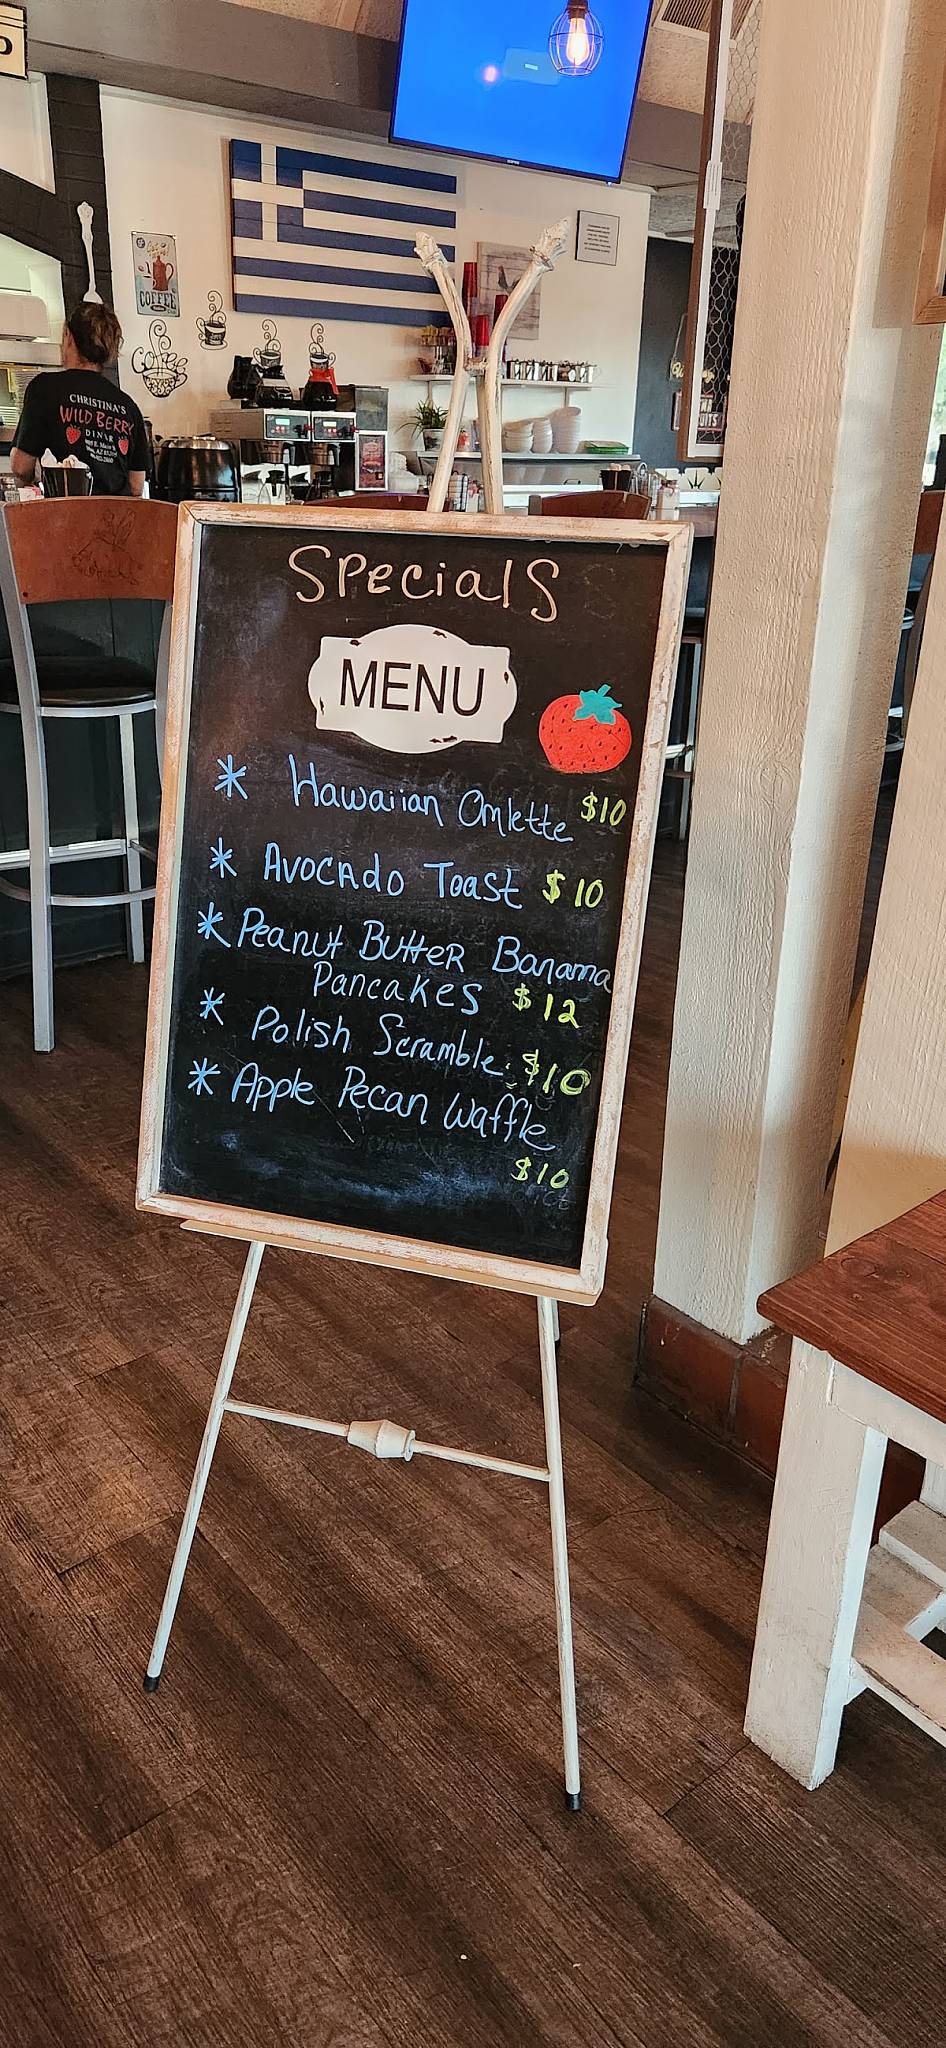 COFFEE
Coffee
CHRISTINA'S
WILD BERRY
DINAR
SPecialS
MENU
* Hawaiian Omlette $10
* Avocado Toast $10
* Peanut Butter Banana
Pancakes $12
* Polish Scramble $10
* Apple Pecan Waffle
$10